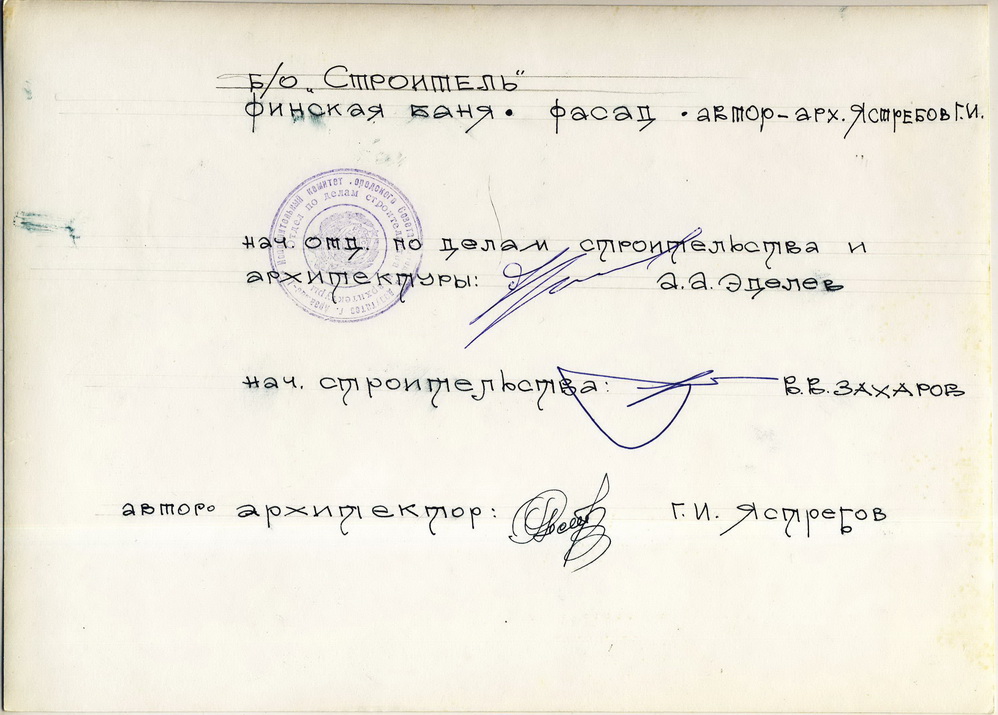 б/о „Строитель"
финская баня • фасад • автор – арх. Ястребов Г.И.
нач. отд. по делам строительства и
архитектуры: А.А. Эделев
нач. строительства: В.В. Захаров
автор архитектор: Г.И. Ястребов
комитет городского Совета
отдел по делам строительства